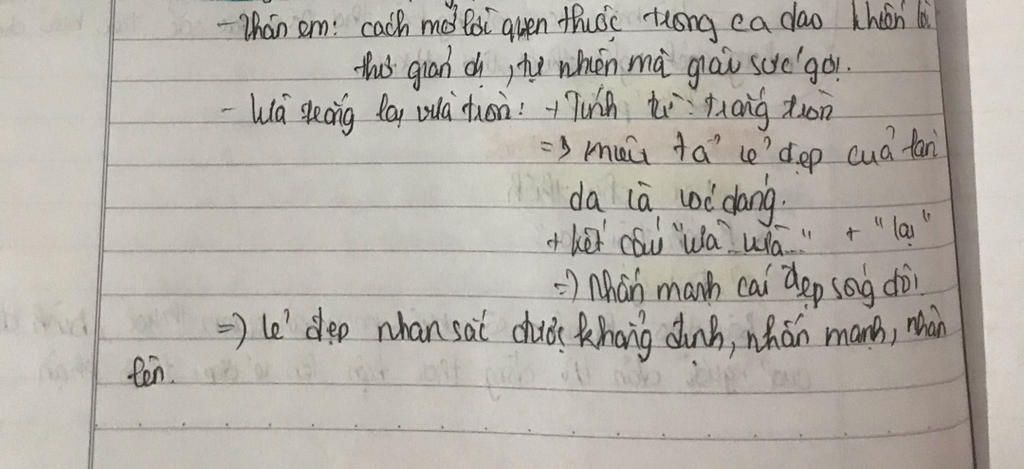 - Thân em: cách mở lời quen thuộc trong ca dao khiến lời
thơ giản dị, tự nhiên mà giàu sức gợi.
- Vừa trắng lại vừa tròn: + Tính từ: trắng tròn
=> miêu tả vẻ đẹp của làn
da và vóc dáng.
+ kết cấu "vừa... vừa..." + "lại"
=> Nhấn mạnh cái đẹp sóng đôi.
=> vẻ đẹp nhan sắc được khẳng định, nhấn mạnh, nhân
lên.